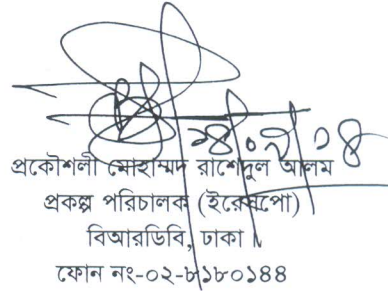 ১৪.০৭.১৪
প্রকৌশলী মোহাম্মদ রাশেদুল আলম
প্রকল্প পরিচালক (ইরেসপো)
বিআরডিবি, ঢাকা।
ফোন নং-০২-৮১৮০১৪৪